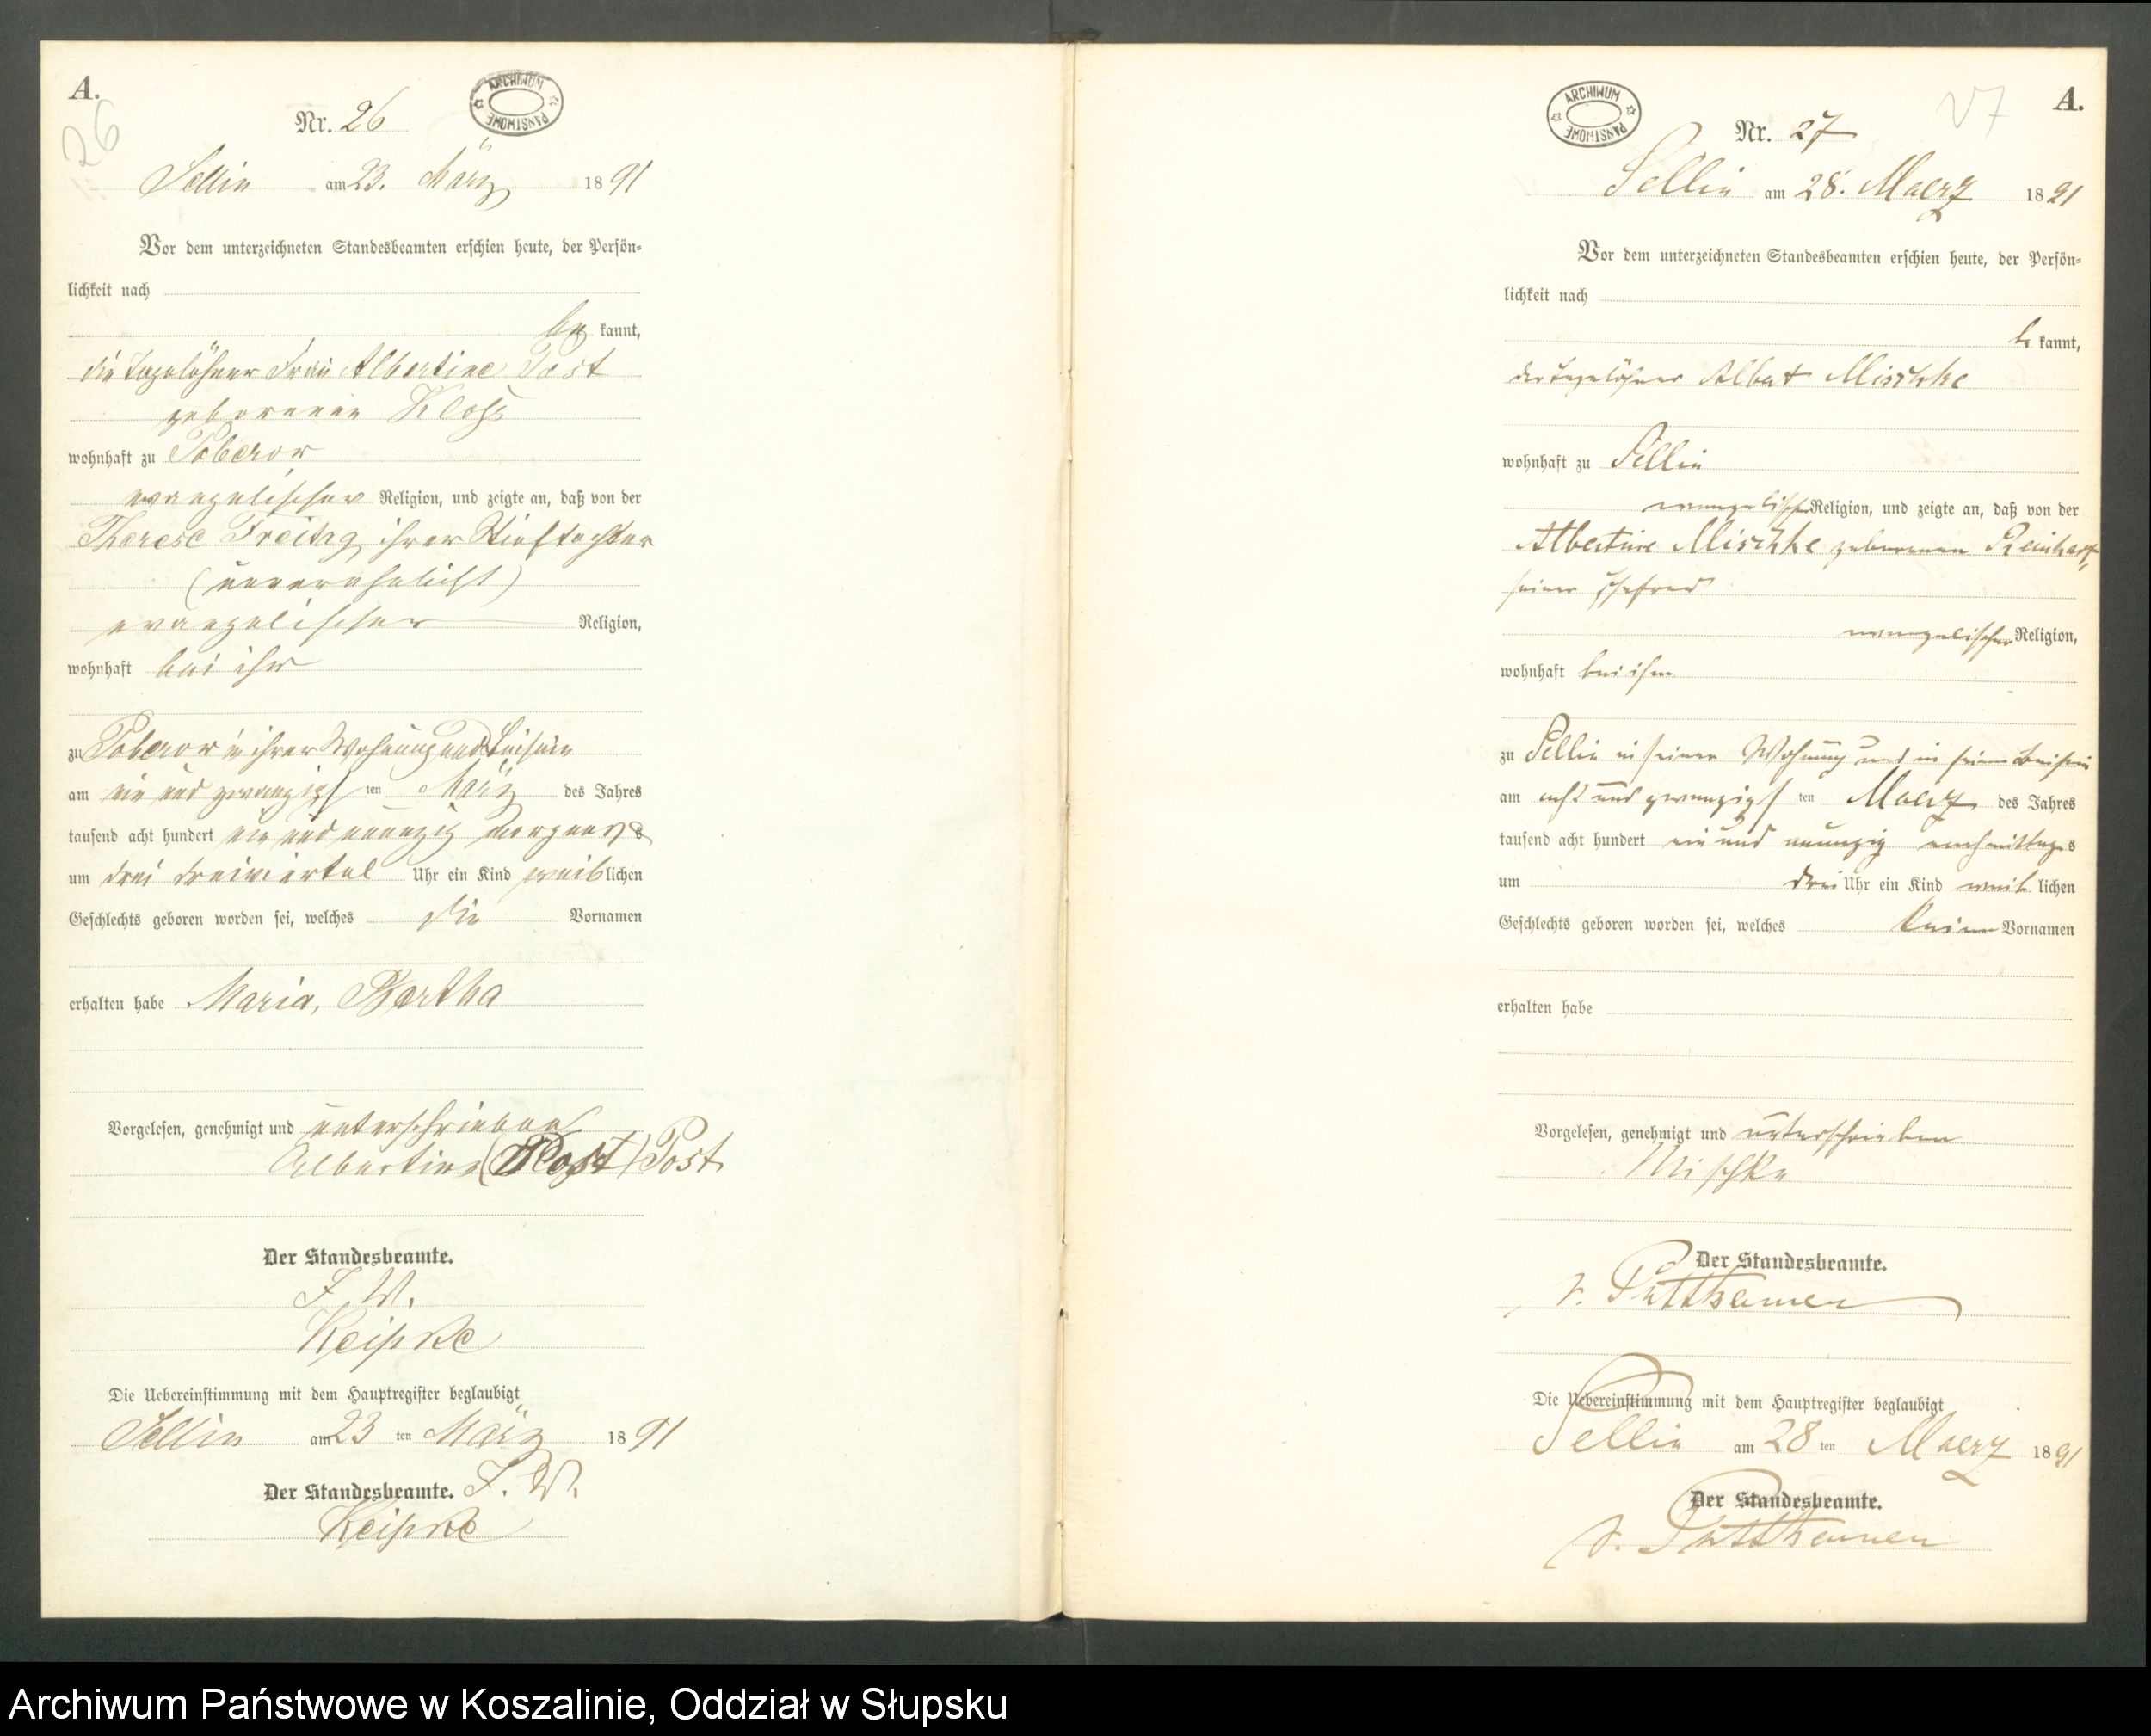 A.
26
ARCHIWUM PAŃSTWOWE
Nr. 26
Sellin am 23. März 1891
Vor dem unterzeichneten Standesbeamten erschien heute, der Persön-
lichkeit nach
be kannt,
die Tagelöhner Frau Albertine Post
geborenen Kloß
wohnhaft zu Poberow
evangelischer Religion, und zeigte an, daß von der
Therese Freitag, ihrer Stieftochter
(unverehelicht)
evangelischer Religion,
wohnhaft bei ihr
zu Poberow in ihrer Wohnung und Beisein
am ein und zwanzigsten März des Jahres
tausend acht hundert ein und neunzig Morgens
um drei dreiviertel Uhr ein Kind weiblichen
Geschlechts geboren worden sei, welches die Vornamen
erhalten habe Maria, Bertha
Vorgelesen, genehmigt und unterschrieben
Albertine () Post
Der Standesbeamte.
I. W.
Keipke
Die Uebereinstimmung mit dem Hauptregister beglaubigt
Sellin am 23 ten März 1891
Der Standesbeamte. I. W.
Keipke
A.
27
ARCHIWUM PAŃSTWOWE
Nr. 27
Sellin am 28. Maerz 1891
Vor dem unterzeichneten Standesbeamten erschien heute, der Persön-
lichkeit nach
be kannt,
der Tagelöhner Albert Mischke
wohnhaft zu Sellin
evangelischer Religion, und zeigte an, daß von der
Albertine Mischke geborenen Reinhart,
seiner Ehefrau
evangelischer Religion,
wohnhaft bei ihm
zu Sellin in seiner Wohnung und in seinem Beisein
am acht und zwanzigsten Maerz des Jahres
tausend acht hundert ein und neunzig nachmittags
um drei Uhr ein Kind weiblichen
Geschlechts geboren worden sei, welches keinen Vornamen
erhalten habe
Vorgelesen, genehmigt und unterschrieben
Mischke
Der Standesbeamte.
v. Puttkamer
Die Uebereinstimmung mit dem Hauptregister beglaubigt
Sellin am 28 ten Maerz 1891
Der Standesbeamte.
v. Puttkamer
Archiwum Państwowe w Koszalinie, Oddział w Słupsku